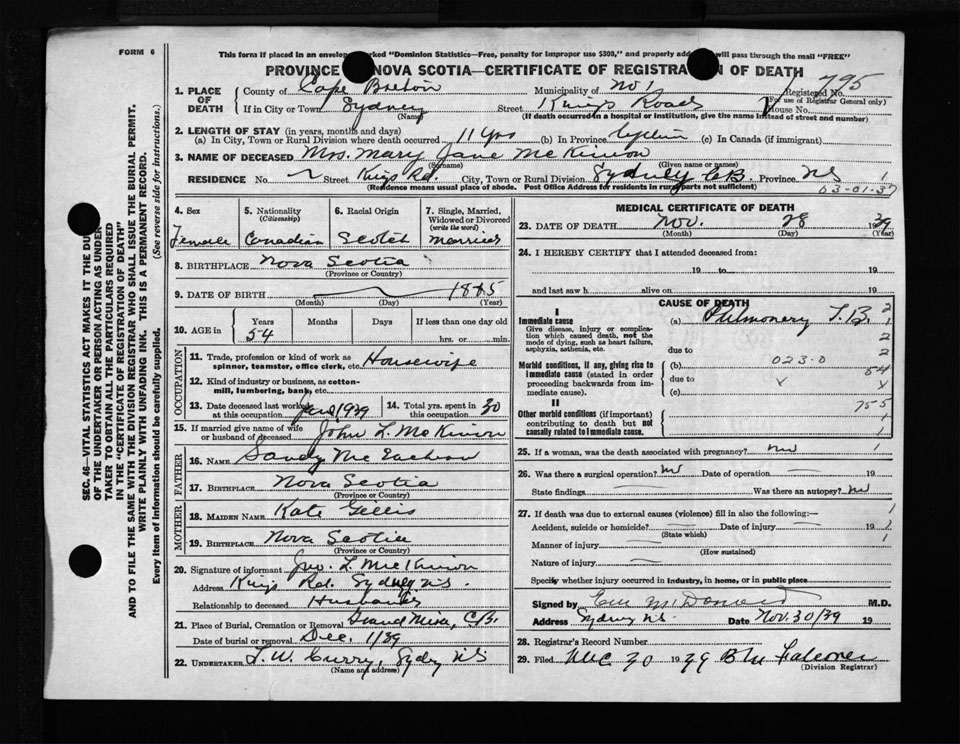 FORM 6
This form if placed in an envelope marked "Dominion Statistics—Free, penalty for improper use $300," and properly addressed will pass through the mail "FREE"
PROVINCE OF NOVA SCOTIA—CERTIFICATE OF REGISTRATION OF DEATH
795
1. PLACE OF DEATH
County of Cape Breton Municipality of No 1 Registered No.
(For use of Registrar General only)
If in City or Town Sydney Street Kings Road House No.
(Name) (If death occurred in a hospital or institution, give the name instead of street and number)
2. LENGTH OF STAY (in years, months and days)
(a) In City, Town or Rural Division where death occurred 11 Yrs (b) In Province (c) In Canada (if immigrant)
3. NAME OF DECEASED Mrs. Mary Jane McKinnon
(Surname) (Given name or names)
RESIDENCE No. Street Kings Rd. City, Town or Rural Division Sydney C.B. Province NS 1
(Residence means usual place of abode. Post Office Address for residents in rural parts not sufficient)
03-01-37
4. Sex
Female
5. Nationality
(Citizenship)
Canadian
6. Racial Origin
Scotch
7. Single, Married, Widowed or Divorced
(write the word)
Married
8. BIRTHPLACE Nova Scotia
(Province or Country)
9. DATE OF BIRTH 1885
(Month) (Day) (Year)
10. AGE in Years Months Days If less than one day old
54 hrs. or min.
OCCUPATION
11. Trade, profession or kind of work as
spinner, teamster, office clerk, etc. Housewife
12. Kind of industry or business, as cotton-
mill, lumbering, bank, etc.
13. Date deceased last worked
at this occupation 1939
14. Total yrs. spent in
this occupation 30
15. If married give name of wife
or husband of deceased John L. McKinnon
FATHER
16. NAME Sandy McEachern
17. BIRTHPLACE Nova Scotia
(Province or Country)
MOTHER
18. MAIDEN NAME Kate Gillis
19. BIRTHPLACE Nova Scotia
(Province or Country)
20. Signature of informant Jno. L. McKinnon
Address Kings Rd. Sydney N.S.
Relationship to deceased Husband
21. Place of Burial, Cremation or Removal Grand Mira, C.B.
Date of burial or removal Dec. 1/39
22. UNDERTAKER T. W. Curry, Sydney NS
(Name and address)
MEDICAL CERTIFICATE OF DEATH
23. DATE OF DEATH Nov. 28 1939
(Month) (Day) (Year)
24. I HEREBY CERTIFY that I attended deceased from:
19 to 19
and last saw h alive on 19
CAUSE OF DEATH
I
Immediate cause (a) Pulmonery T.B.
Give disease, injury or complica-
tion which caused death, not the
mode of dying, such as heart failure,
asphyxia, asthenia, etc.
due to
Morbid conditions, if any, giving rise to
immediate cause (stated in order
proceeding backwards from im-
mediate cause).
(b) 023-0
due to
(c)
II
Other morbid conditions (if important)
contributing to death but not
causally related to immediate cause.
2
1
2
2
54
755
1
1
25. If a woman, was the death associated with pregnancy? no 1
26. Was there a surgical operation? no Date of operation
State findings Was there an autopsy? no
27. If death was due to external causes (violence) fill in also the following:—
Accident, suicide or homicide? Date of injury 19
(State which)
Manner of injury
(How sustained)
Nature of injury
Specify whether injury occurred in industry, in home, or in public place
Signed by M.D.
Address Sydney N.S. Date Nov. 30/39 19
28. Registrar's Record Number
29. Filed 30 1939
(Division Registrar)
SEC. 46—VITAL STATISTICS ACT MAKES IT THE DUTY
OF THE UNDERTAKER OR PERSON ACTING AS UNDER-
TAKER TO OBTAIN ALL THE PARTICULARS REQUIRED
IN THE "CERTIFICATE OF REGISTRATION OF DEATH"
AND TO FILE THE SAME WITH THE DIVISION REGISTRAR WHO SHALL ISSUE THE BURIAL PERMIT.
WRITE PLAINLY WITH UNFADING INK. THIS IS A PERMANENT RECORD.
Every item of Information should be carefully supplied. (See reverse side for instructions.)